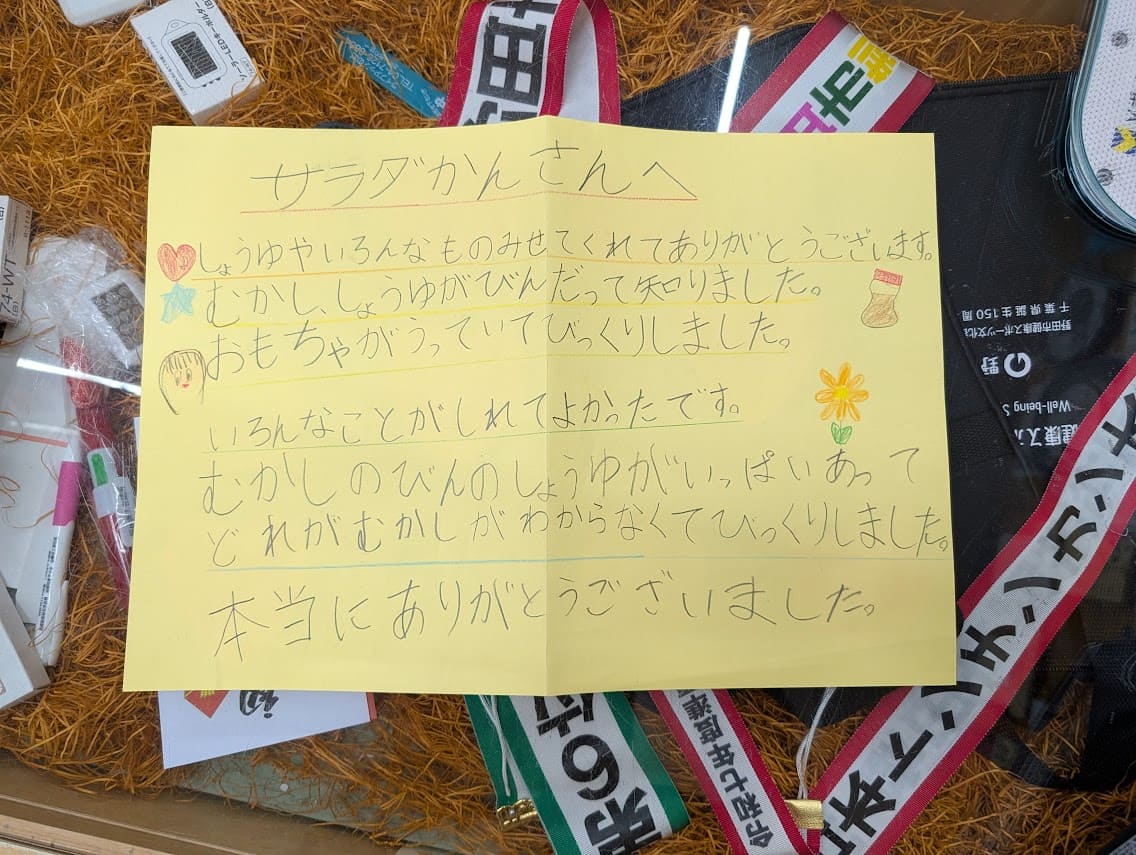 サラダかんさんへ
しょうゆやいろんなものみせてくれてありがとうございます。
むかし、しょうゆがびんだって知りました。
おもちゃがうっていてびっくりしました。
いろんなことがしれてよかったです。
むかしのびんのしょうゆがいっぱいあって
どれがむかしかわからなくてびっくりしました。
本当にありがとうございました。
ソーラーLEDキーホルダー
千葉県誕生150周
野田市健康スポーツ文化
野
Well-being S
健康ス
第6位
令和七年度準